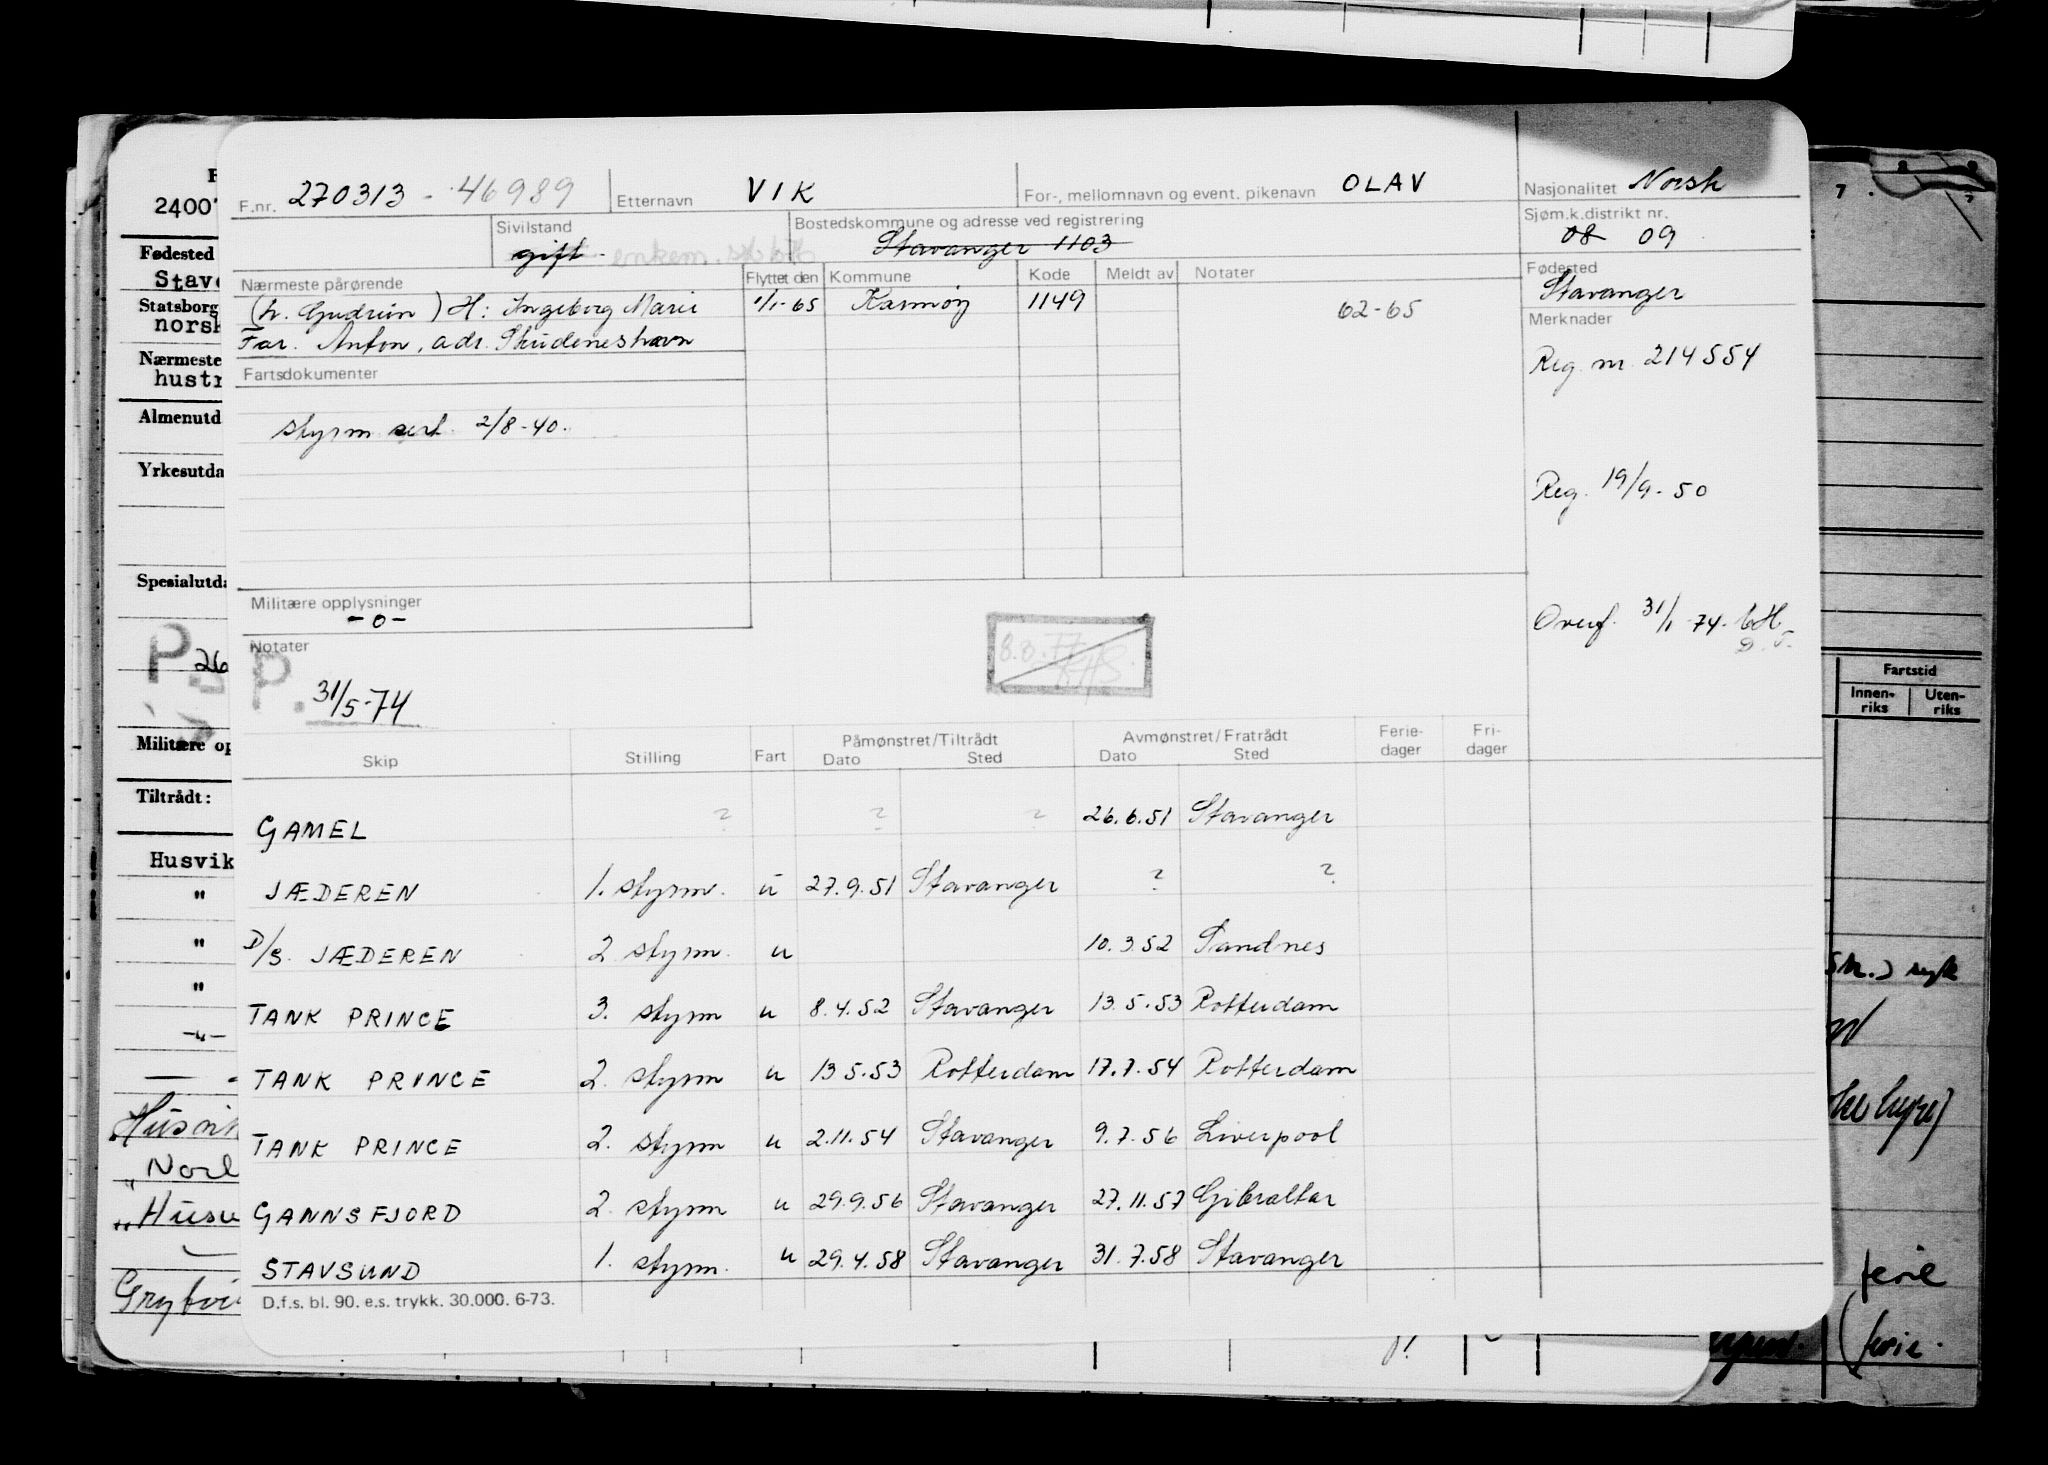 F.nr. 270313 - 46989 Etternavn VIK For-, mellomnavn og event. pikenavn OLAV Nasjonalitet Norsk
Sivilstand gift enkem. Bostedskommune og adresse ved registrering Stavanger 1103 Sjøm.k.distrikt nr. 08 09
Nærmeste pårørende Flyttet den Kommune Kode Meldt av Notater Fødested Stavanger
(h. Gudrun) H: Ingeborg Marie 1/1-65 Karmøy 1149 62-65 Merknader
Far. Anton, adr. Skudeneshavn
Reg. nr. 214554
Fartsdokumenter
styrm sert. 2/8-40.
Reg. 19/9-50
Militære opplysninger
-0-
Overf. 31/1-74-
Notater
P. 31/5-74
8.8.77
Skip Stilling Fart Påmønstret/Tiltrådt Dato Sted Avmønstret/Fratrådt Dato Sted Ferie-dager Fri-dager
GAMEL ? ? ? 26.6.51 Stavanger
JÆDEREN 1. styrm. u 27.9.51 Stavanger ? ?
D/S. JÆDEREN 2 styrm. u 10.3.52 Sandnes
TANK PRINCE 3. styrm u 8.4.52 Stavanger 13.5.53 Rotterdam
TANK PRINCE 2. styrm u 13.5.53 Rotterdam 17.7.54 Rotterdam
TANK PRINCE 2. styrm u 2.11.54 Stavanger 9.7.56 Liverpool
GANNSFJORD 2. styrm u 29.9.56 Stavanger 27.11.57 Gibraltar
STAVSUND 1. styrm. u 29.4.58 Stavanger 31.7.58 Stavanger
D.f.s. bl. 90. e.s. trykk. 30.000. 6-73.
2400
Fødested
Stav
Statsborg
norsk
Nærmeste
hustr
Almenutd
Yrkesutda
Spesialutda
P 26
Militære op
Tiltrådt:
Husvik
"
"
"
-"-
Husvik
"Nor
"Husv
Fartstid
Innen-riks Uten-riks
syk
ferie
(ferie.